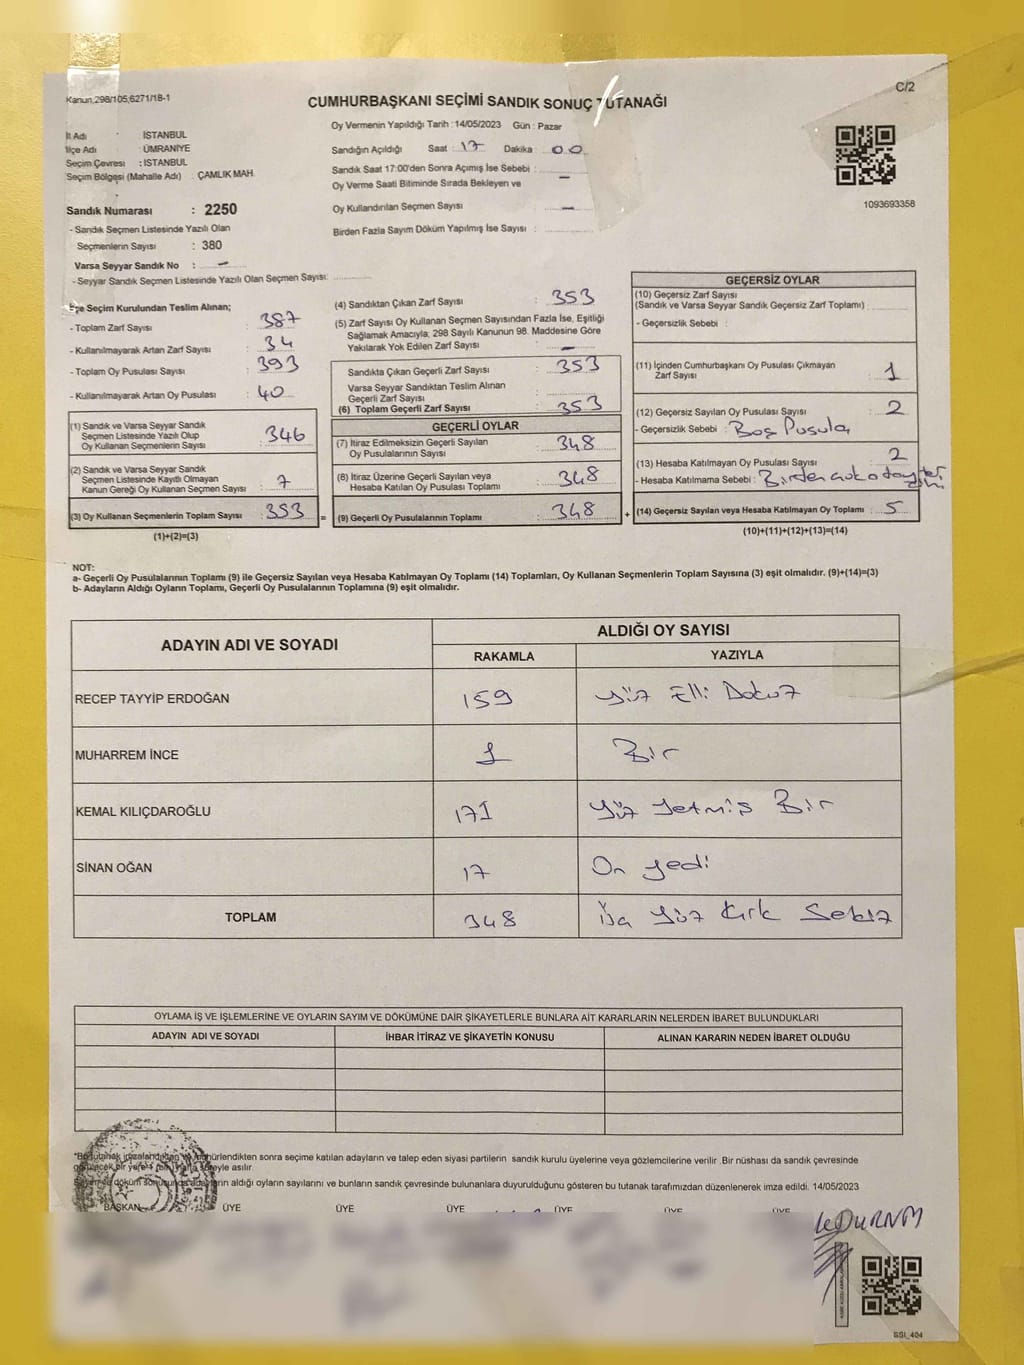 Kanun,298/105,6271/18-1
C/2
CUMHURBAŞKANI SEÇİMİ SANDIK SONUÇ TUTANAĞI
İl Adı : İSTANBUL
İlçe Adı : ÜMRANİYE
Seçim Çevresi : İSTANBUL
Seçim Bölgesi (Mahalle Adı) : ÇAMLIK MAH.
Sandık Numarası : 2250
- Sandık Seçmen Listesinde Yazılı Olan
Seçmenlerin Sayısı : 380
Varsa Seyyar Sandık No : —
- Seyyar Sandık Seçmen Listesinde Yazılı Olan Seçmen Sayısı:
Oy Vermenin Yapıldığı Tarih : 14/05/2023 Gün : Pazar
Sandığın Açıldığı Saat : 17 Dakika : 00
Sandık Saat 17:00'den Sonra Açımış İse Sebebi :
Oy Verme Saati Bitiminde Sırada Bekleyen ve —
Oy Kullandırılan Seçmen Sayısı —
Birden Fazla Sayım Döküm Yapılmış İse Sayısı :
1093693358
İlçe Seçim Kurulundan Teslim Alınan;
- Toplam Zarf Sayısı : 387
- Kullanılmayarak Artan Zarf Sayısı : 34
- Toplam Oy Pusulası Sayısı : 393
- Kullanılmayarak Artan Oy Pusulası : 40
(1) Sandık ve Varsa Seyyar Sandık
Seçmen Listesinde Yazılı Olup
Oy Kullanan Seçmenlerin Sayısı : 346
(2) Sandık ve Varsa Seyyar Sandık
Seçmen Listesinde Kayıtlı Olmayan
Kanun Gereği Oy Kullanan Seçmen Sayısı : 7
(3) Oy Kullanan Seçmenlerin Toplam Sayısı : 353
(1)+(2)=(3)
(4) Sandıktan Çıkan Zarf Sayısı : 353
(5) Zarf Sayısı Oy Kullanan Seçmen Sayısından Fazla İse, Eşitliği
Sağlamak Amacıyla; 298 Sayılı Kanunun 98. Maddesine Göre
Yakılarak Yok Edilen Zarf Sayısı : —
Sandıkta Çıkan Geçerli Zarf Sayısı : 353
Varsa Seyyar Sandıktan Teslim Alınan
Geçerli Zarf Sayısı :
(6) Toplam Geçerli Zarf Sayısı : 353
GEÇERLİ OYLAR
(7) İtiraz Edilmeksizin Geçerli Sayılan
Oy Pusulalarının Sayısı : 348
(8) İtiraz Üzerine Geçerli Sayılan veya
Hesaba Katılan Oy Pusulası Toplamı : 348
=
(9) Geçerli Oy Pusulalarının Toplamı : 348
+
GEÇERSİZ OYLAR
(10) Geçersiz Zarf Sayısı
(Sandık ve Varsa Seyyar Sandık Geçersiz Zarf Toplamı) :
- Geçersizlik Sebebi :
(11) İçinden Cumhurbaşkanı Oy Pusulası Çıkmayan
Zarf Sayısı : 1
(12) Geçersiz Sayılan Oy Pusulası Sayısı : 2
- Geçersizlik Sebebi : Boş Pusula
(13) Hesaba Katılmayan Oy Pusulası Sayısı : 2
- Hesaba Katılmama Sebebi :
(14) Geçersiz Sayılan veya Hesaba Katılmayan Oy Toplamı : 5
(10)+(11)+(12)+(13)=(14)
NOT:
a- Geçerli Oy Pusulalarının Toplamı (9) ile Geçersiz Sayılan veya Hesaba Katılmayan Oy Toplamı (14) Toplamları, Oy Kullanan Seçmenlerin Toplam Sayısına (3) eşit olmalıdır. (9)+(14)=(3)
b- Adayların Aldığı Oyların Toplamı, Geçerli Oy Pusulalarının Toplamına (9) eşit olmalıdır.
ADAYIN ADI VE SOYADI ALDIĞI OY SAYISI
RAKAMLA YAZIYLA
RECEP TAYYİP ERDOĞAN 159 Yüz Elli Dokuz
MUHARREM İNCE 1 Bir
KEMAL KILIÇDAROĞLU 171 Yüz Yetmiş Bir
SİNAN OĞAN 17 On yedi
TOPLAM 348 Üç Yüz Kırk Sekiz
OYLAMA İŞ VE İŞLEMLERİNE VE OYLARIN SAYIM VE DÖKÜMÜNE DAİR ŞİKAYETLERLE BUNLARA AİT KARARLARIN NELERDEN İBARET BULUNDUKLARI
ADAYIN ADI VE SOYADI İHBAR İTİRAZ VE ŞİKAYETİN KONUSU ALINAN KARARIN NEDEN İBARET OLDUĞU
*Bu tutanak imzalandıktan ve mühürlendikten sonra seçime katılan adayların ve talep eden siyasi partilerin sandık kurulu üyelerine veya gözlemcilerine verilir .Bir nüshası da sandık çevresinde
görülecek bir yere 1 (bir) hafta süreyle asılır.
döküm sonucunda adayların aldığı oyların sayılarını ve bunların sandık çevresinde bulunanlara duyurulduğunu gösteren bu tutanak tarafımızdan düzenlenerek imza edildi. 14/05/2023
BAŞKAN ÜYE ÜYE ÜYE ÜYE ÜYE ÜYE
SSI_404